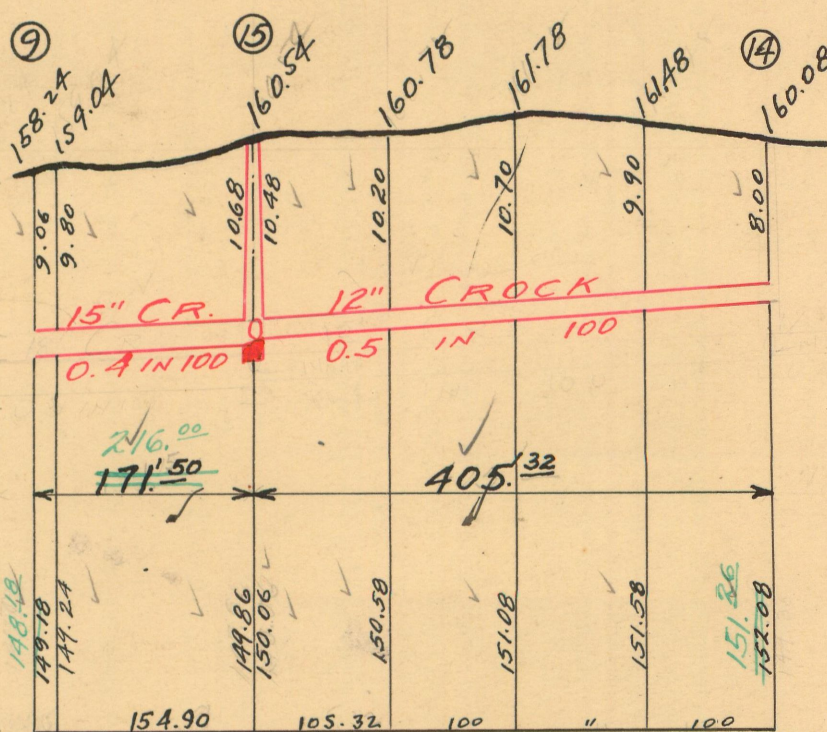 9 15 14
158.24 159.04 160.54 160.78 161.78 161.48 160.08
9.06 9.80 10.68 10.48 10.20 10.70 9.90 8.00
15" CR. 12" CROCK
0.4 IN 100 0.5 IN 100
216.00
171.'50 405.'32
148.18 149.18 149.24 149.86 150.06 150.58 151.08 151.58 151.26 152.08
154.90 105.32 100 " 100